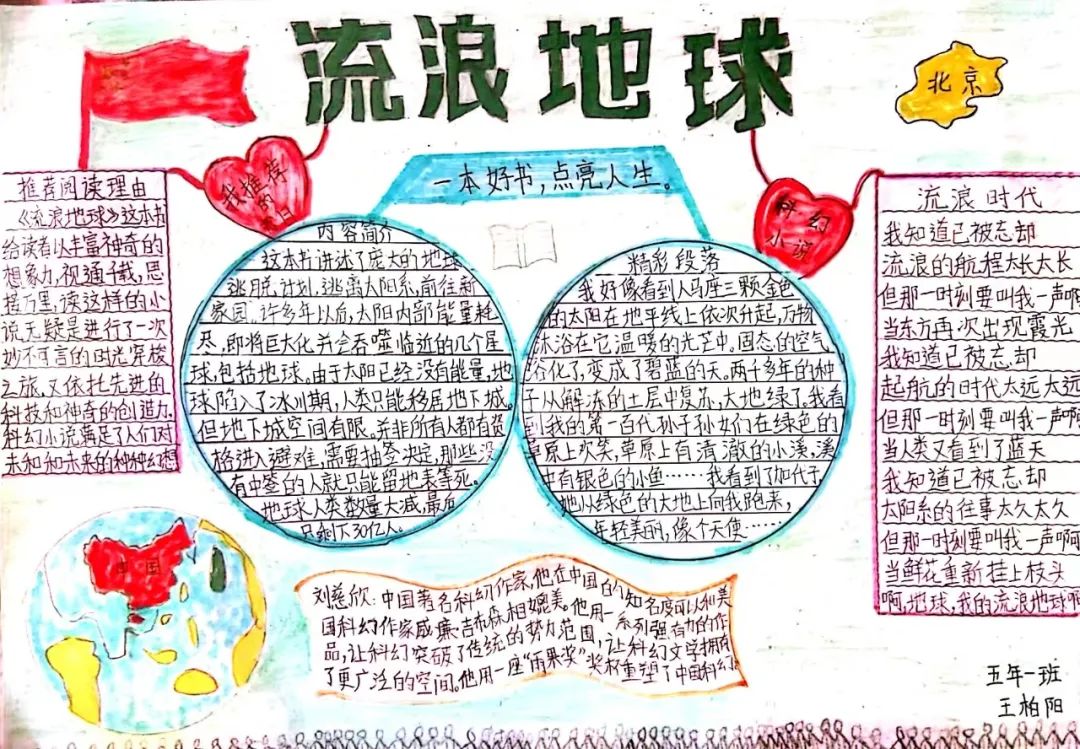 流浪地球
北京
我推荐
的
科幻
小说
一本好书，点亮人生。
推荐阅读理由
《流浪地球》这本书
给读者以丰富神奇的
想象力，视通千载，思
接万里，读这样的小
说无疑是进行了一次
妙不可言的时光穿梭
之旅，又依托先进的
科技和神奇的创造力，
科幻小说满足了人们对
未和和未来的种种幻想
内容简介
这本书讲述了庞大的地球
逃脱计划，逃离太阳系，前往新
家园，许多年以后，太阳内部能量耗
尽，即将巨大化并会吞噬临近的几个星
球，包括地球。由于太阳已经没有能量，地
球陷入了冰川期，人类只能移居地下城。
但地下城空间有限。并非所有人都有资
格进入避难，需要抽签决定，那些没
有中签的人就只能留地表等死。
地球人类数量大减，最后
只剩下30亿人。
精彩段落
我好像看到人马座三颗金色
的太阳在地平线上依次升起，万物
沐浴在它温暖的光芒中，固态的空气
溶化了，变成了碧蓝的天。两千多年的种
子从解冻的土层中复苏，大地绿了，我看
到我的第一百代孙子孙女们在绿色的
草原上欢笑，草原上有清澈的小溪，溪
中有银色的小鱼……我看到了加代子
她从绿色的大地上向我跑来，
年轻美丽，像个天使……
流浪时代
我知道已被忘却
流浪的航程太长太长
但那一时刻要叫我一声啊
当东方再次出现霞光
我知道已被忘却
起航的时代太远太远
但那一时刻要叫我一声啊
当人类又看到了蓝天
我知道已被忘却
太阳系的往事太久太久
但那一时刻要叫我一声啊
当鲜花重新挂上枝头
啊，地球，我的流浪地球啊
中国
刘慈欣：中国著名科幻作家，他在中国的知名度可以和美
国科幻作家威廉·吉布森相媲美。他用一系列强有力的作
品，让科幻突破了传统的势力范围，让科幻文学拥有
了更广泛的空间。他用一座“雨果奖”奖杯重塑了中国科幻。
五年一班
王柏阳